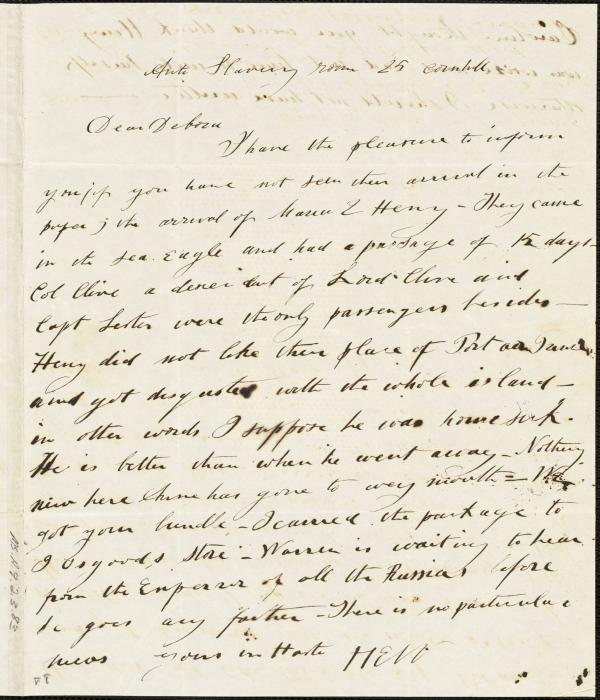 Anti Slavery room 25 Cornhill
Dear Debora
I have the pleasure to inform
you (if you have not seen their arrival in the
paper) the arrival of Maria & Henry - They came
in the Sea Eagle and had a passage of 15 days -
Col Clive a descendant of Lord Clive and
Capt were the only passengers besides -
Henry did not like their place of Port au
and got disgusted with the whole island -
in other words I suppose he was home sick.
He is better than when he went away - Nothing
new here has gone to weymouth = We
got your bundle - I carried the package to
I Osgoods store - Warren is waiting to hear
from the Emperor of all the Russias before
he goes any farther - There is no particular
news yours in Haste HEW